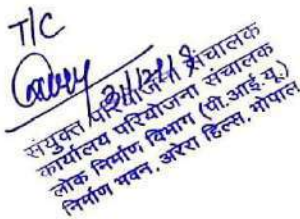 T/C
संयुक्त परियोजना संचालक
कार्यालय परियोजना संचालक
लोक निर्माण विभाग (पी.आई.यू.)
निर्माण भवन, अरेरा हिल्स, भोपाल